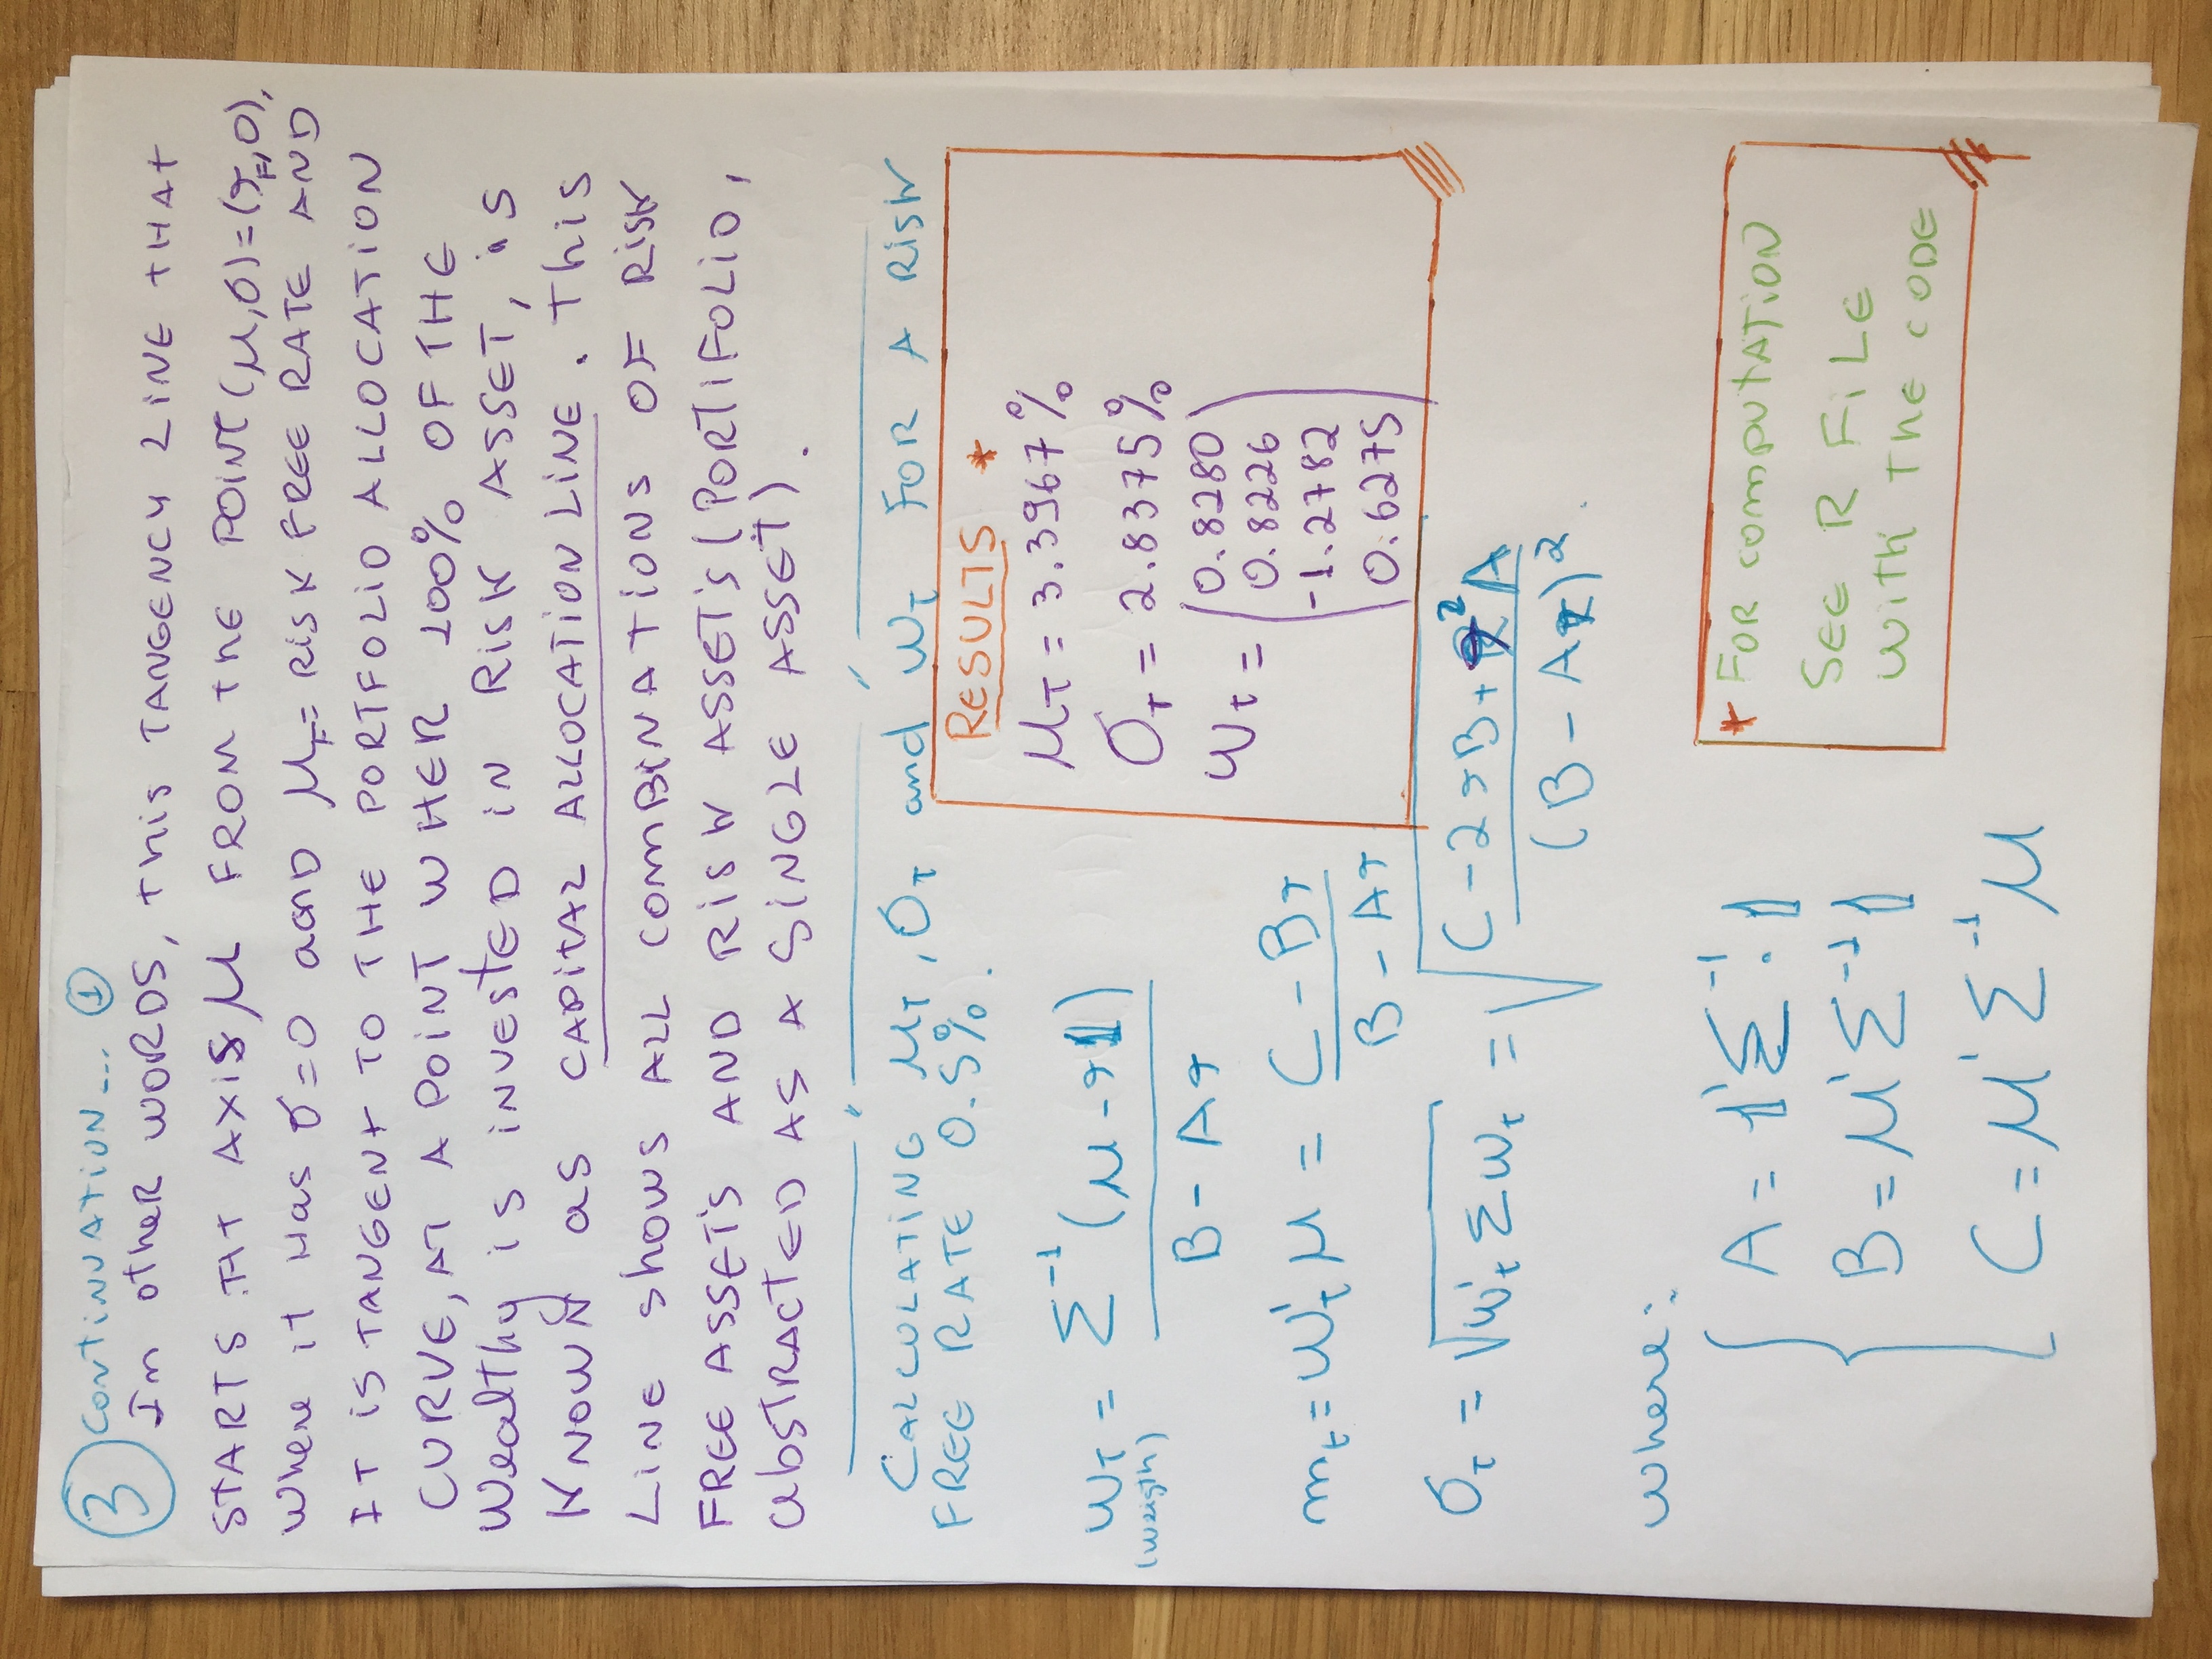 3 CONTINUATION... 1
In other WORDS, this TANGENCY LINE THAT
STARTS AT AXIS μ FROM the POINT (μ,σ)=(r_F,0),
Where it Has σ=0 aand μ_F= RISK FREE RATE AND
IT IS TANGENT TO THE PORTFOLIO ALLOCATION
CURVE, AT A POINT WHER 100% OF THE
Wealthy is invested in RISK ASSET, is
KNOWN as CAPITAL ALLOCATION LINE. This
LINE shows ALL COMBINATIONS OF RISK
FREE ASSET'S AND RISK ASSET'S (PORTIFOLIO,
abSTRACTED AS A SINGLE ASSET).
CALCULATING μ_T, σ_T and w_T FOR A RISK
FREE RATE 0.5%.
RESULTS *
μ_T = 3.3967%
σ_T = 2.8375%
w_t = (0.8280
0.8226
-1.2782
0.6275)
w_T = Σ⁻¹(μ - r𝟙)
(weigth)
B - Ar
m_t = w'_t μ = C - Br
B - Ar
σ_T = √w'_t Σ w_t = √C - 2rB + r²A
(B - Ar)².
where:
A = 𝟙'Σ⁻¹·𝟙
B = μ'Σ⁻¹𝟙
C = μ'Σ⁻¹μ
* FOR COMPUTATION
SEE R FILE
WITH THE CODE